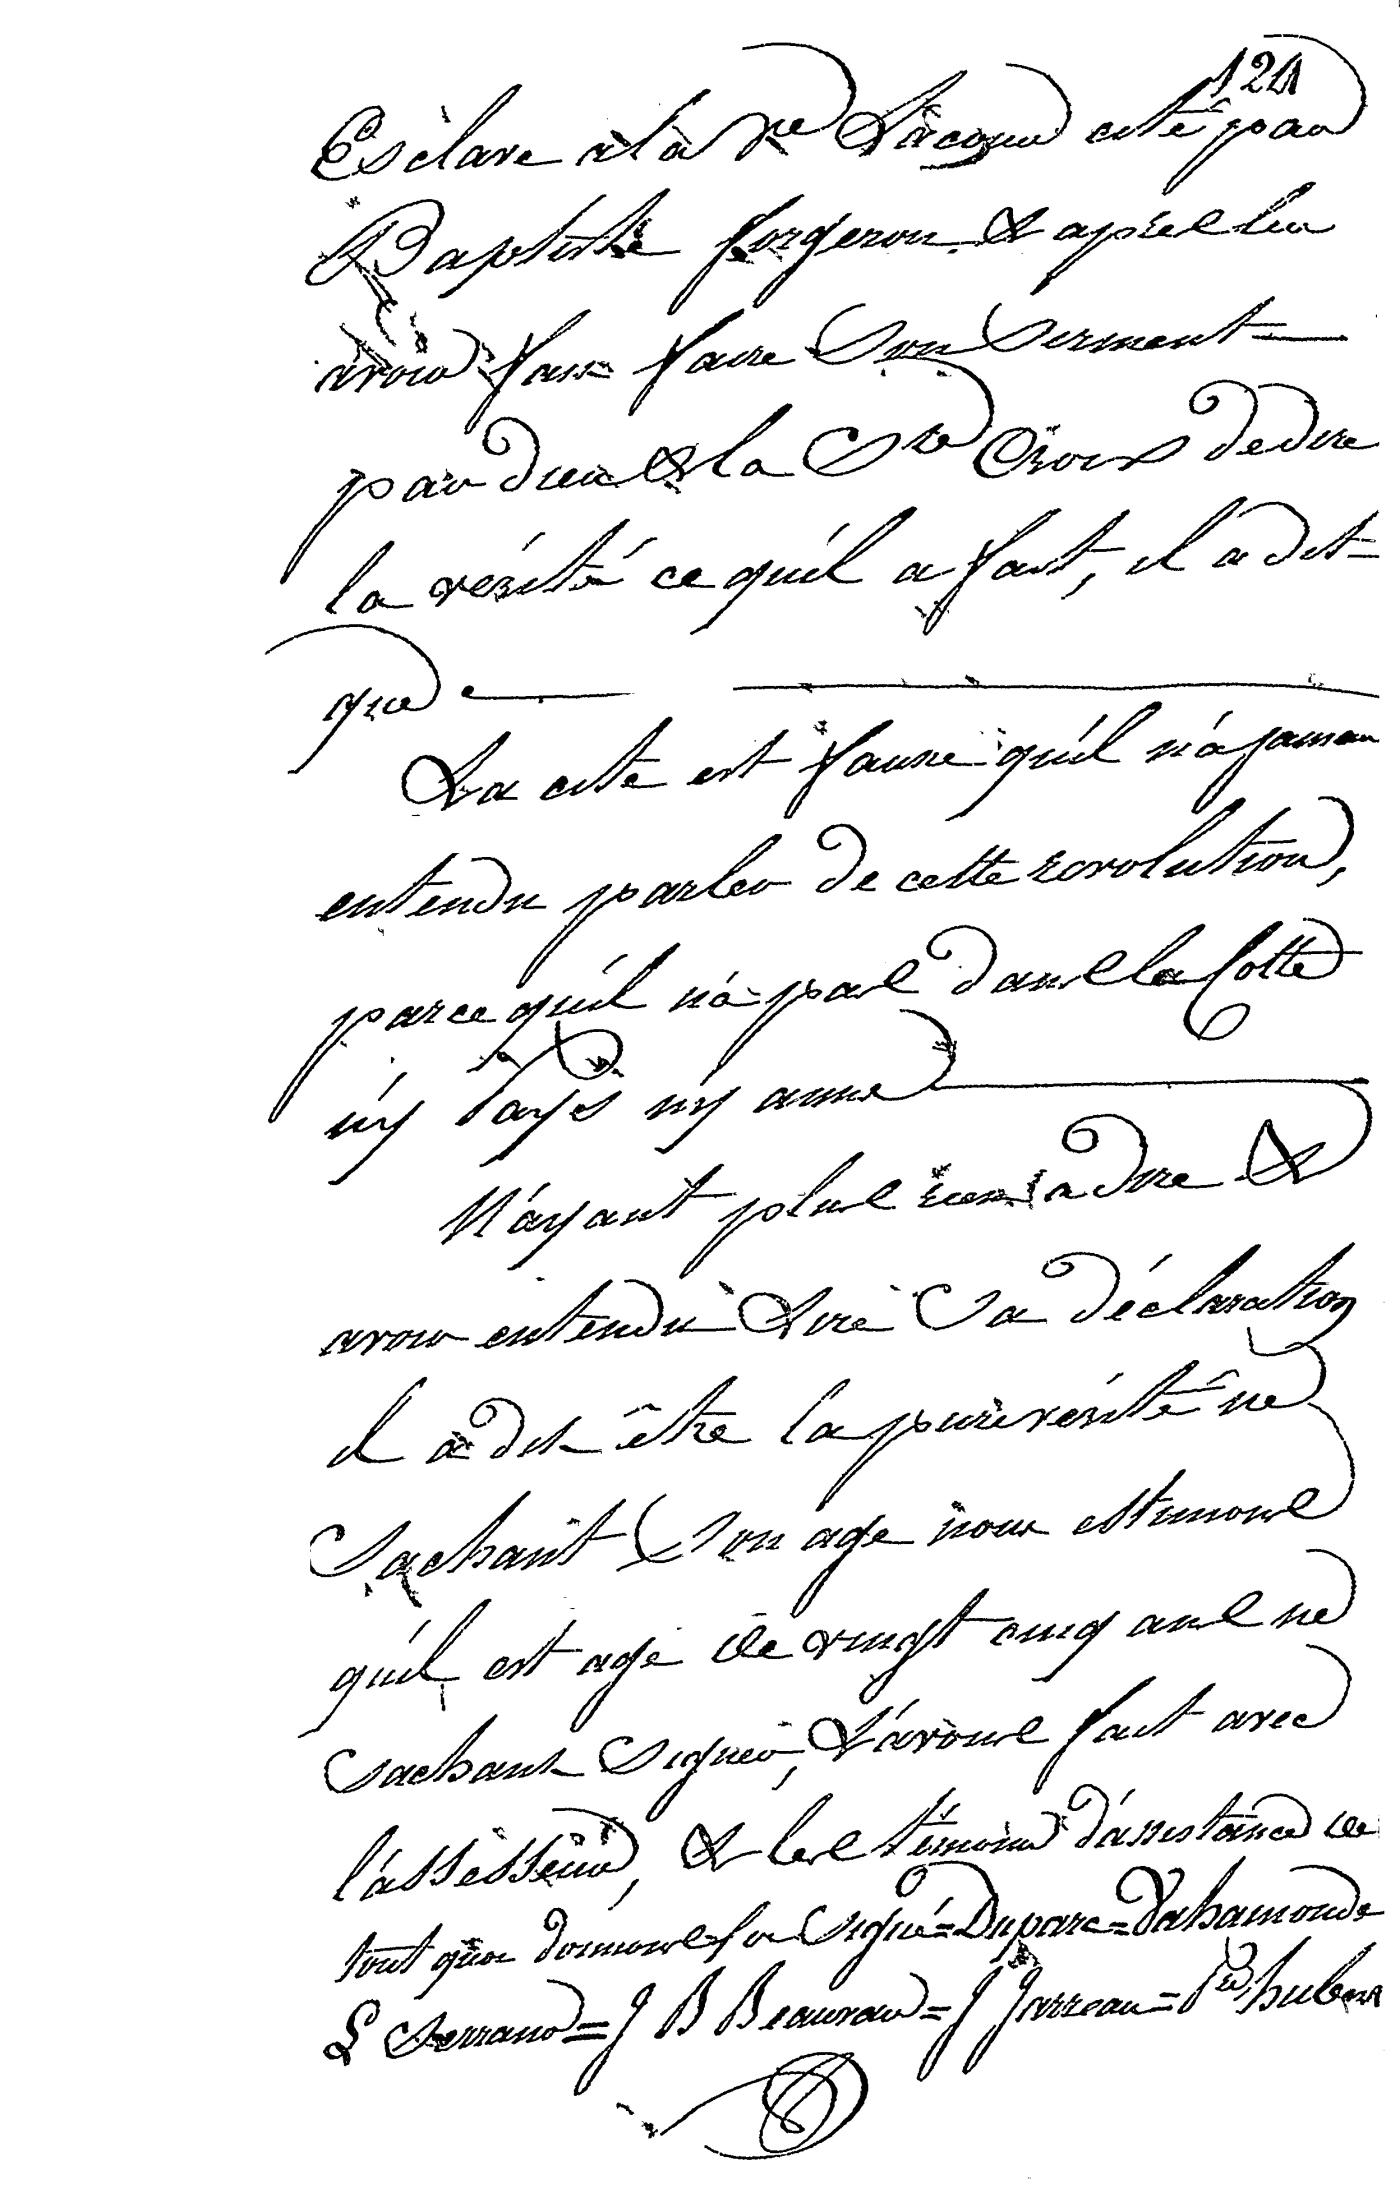 121
Esclave à la Ve Lacour cité par
Baptiste forgeron & apres lui
avoir fait faire Son Serment
par dieu & la Ste Croix de dire
la vérité ce qu'il a fait, il a dit
que
La cite est fausse qu'il n'a jamais
entendu parler de cette revolution,
parce qu'il n'a pas dans la Cotte
n'y Pays ny amie
N'ayant plus rien a dire &
avoir entendu Lire Sa déclaration
il a dit être la pure vérité ne
Sachant Son age nous estimons
qu'il est agé de vingt cinq ans ne
Sachant Signer, L'avons fait avec
l'assesseur, & les témoins d'assistance de
tout quoi donnons foi Signé = Duparc = Vahamonde
L Serrano = J B Beauvais = J Jarreau = Pre huber